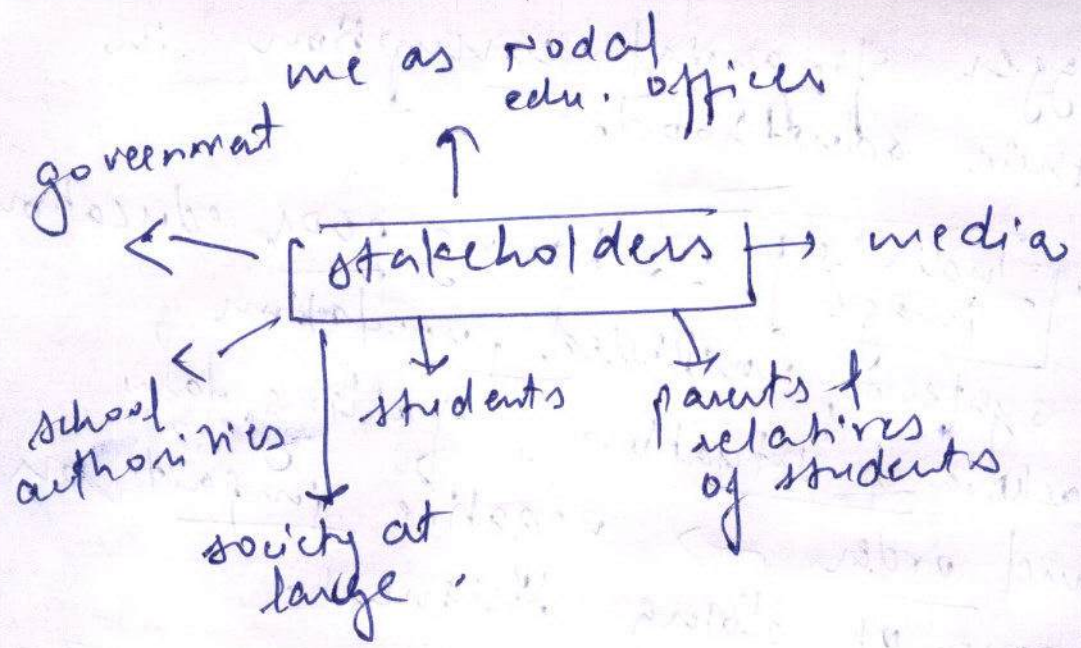 me as nodal
edu. officer
government
stakeholders
media
school
authorities
students
parents &
relatives
of students
society at
large